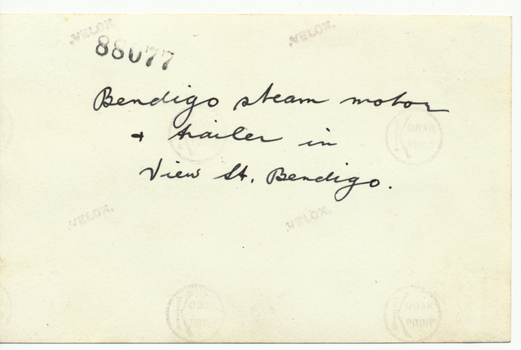 VELOX.
VELOX.
88077
Bendigo steam motor
+ trailer in
View St. Bendigo.
KODAK
PRINT
VELOX.
VELOX.
KODAK
PRINT
KODAK
PRINT